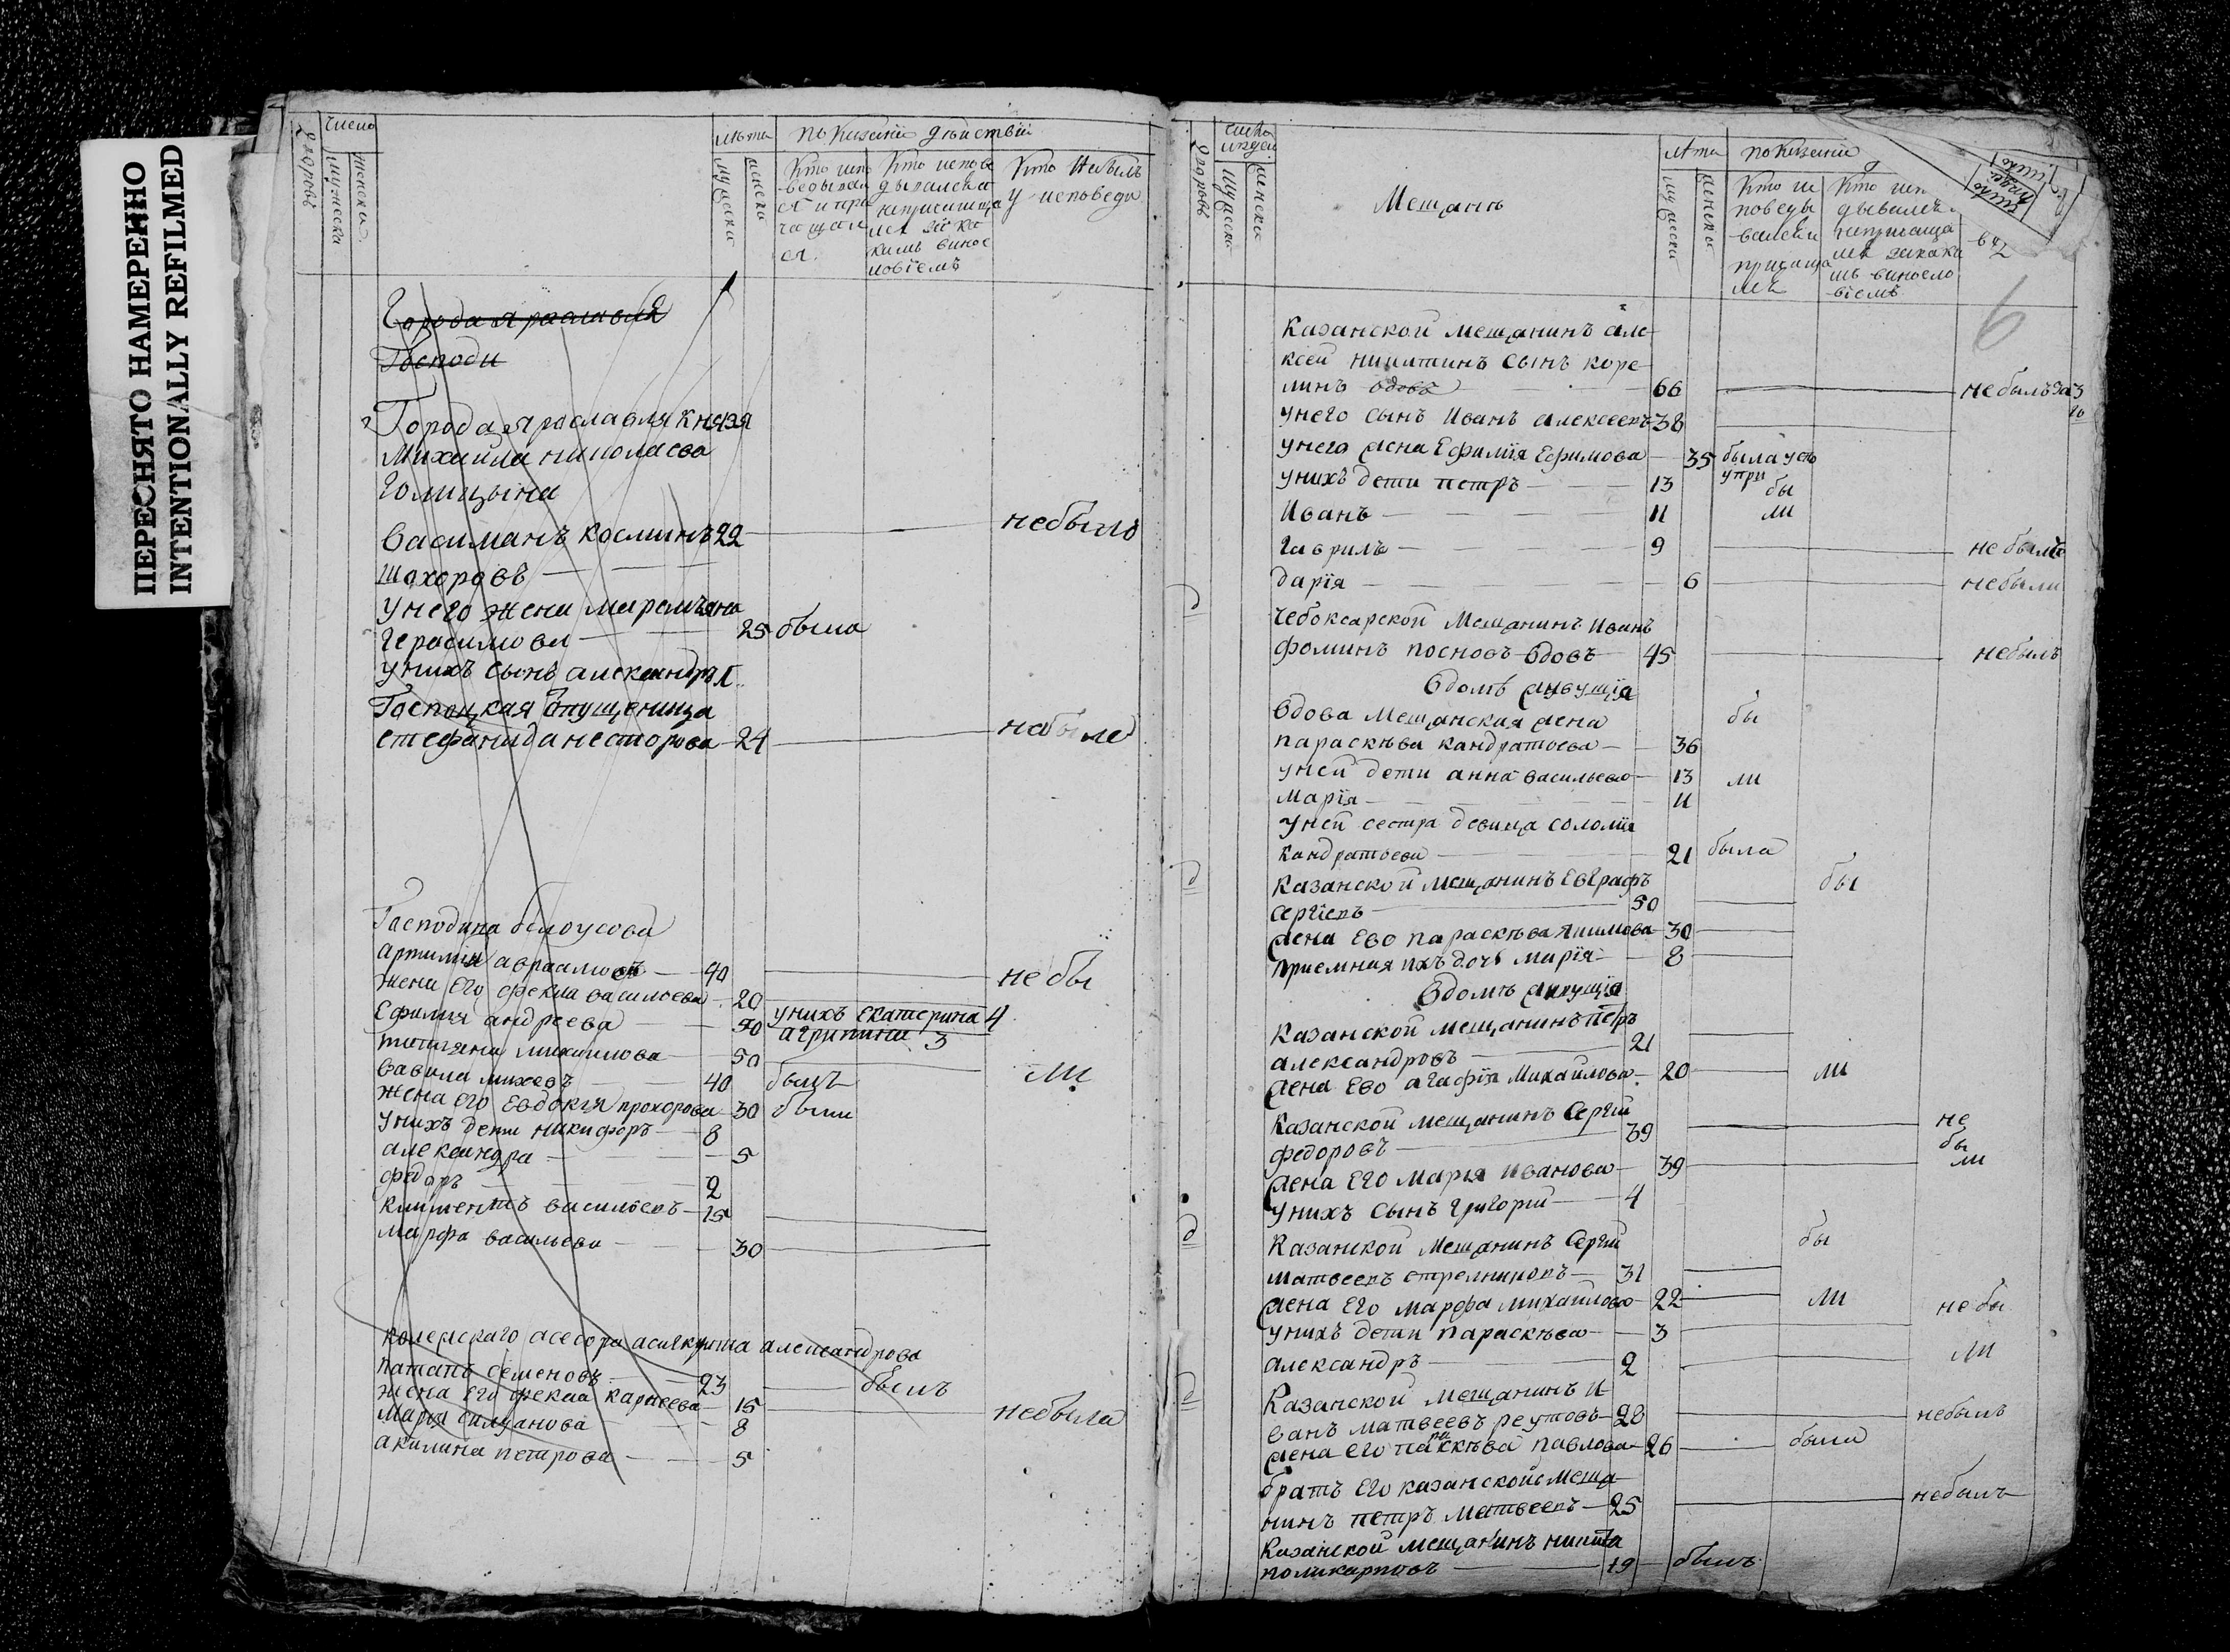 ПЕРЕСНЯТО НАМЕРЕННО
INTENTIONALLY REFILMED
число
дворовъ
мужеска
женска
лѣта
мужеска
женска
показаніи дѣйствіи
Кто испо
ведывал
ся и при
чащал
ся.
Кто испове
дывалска
непричаща
лся за ка
кимъ винос
ловіемъ
Кто Небылъ
у исповеди
Города Ярославля
Господи
Города Ярославля Князя
Михаила николаева
Голицына
Василианъ Косминъ 22 небылъ
шахоровъ
унего жена Маремъяна
Герасимова 25 была
унихъ сынъ александръ
Господская отпущеница
стефанида несторова 24 небыла
Господина белоусова
Артимій авраамовъ 40 не бы
жена Его фекла васильева 20
Ефимія андреева 50 унихъ Екатерина 4
агрипина 3
татияна михаилова 50
вавила михеевъ 40 былъ ли
жена его Евдокія прохорова 30 была
унихъ дети никифоръ 8
александра 5
федоръ 2
климентъ василіевъ 15
марфа васильева 30
колежскаго асесора александрова
патапъ семеновъ 23 былъ
жена Его фекла карпеева 15 небыла
Марія силуанова 8
акилина петарова 5
дворовъ
число
людеи
мужеска
женска
Мещанъ
лѣта
мужеска
женска
показаніи
Кто ис
поведы
валски
причаща
лся
Кто исп
дывалск
непричаща
лся закаки
мъ виносло
віемъ
6
Казанской мещанинъ але
ксей никитинъ сынъ коре
линъ вдовъ 66 не былъ за 3
унего сынъ Иванъ алексеевъ 38
унего жена Ефимія Ефимова 35 была у
упри
унихъ дети петръ 13 бы
Иванъ 11 ли
Гаврилъ 9 не былъ
дарія 6 небыли
Чебоксарской Мещанинъ Иванъ
фоминъ посновъ вдовъ 45 небылъ
Вдомѣ живущія
Вдова Мещанская жена бы
параскѣва кандратьева 36
уней дети анна васильева 13 ли
марія 11
уней сестра девица соломія
кандратьева 21 была
Казанской мещанинъ Евграфъ бы
сергіевъ 50
жена Ево параскѣва якимова 30
приемная ихъ дочь марія 8
Вдомѣ живущія
Казанской мещанинъ петръ
александровъ 21
жена Ево агафія Михаилова 20 ли
Казанской мещанинъ Сергій не
федоровъ 39 бы
жена Его марія иванова 39 ли
унихъ сынъ григорій 4
Казанской Мещанинъ Сергій бы
матвеевъ стрелниковъ 31
жена Его марфа михаилова 22 ли не бы
унихъ дети параскѣва 3
александръ 2 ли
Казанской мещанинъ и
ванъ матвеевъ реутовъ 28 небылъ
жена его параскѣва павлова 26 была
братъ Его казанской меща
нинъ петръ матвеевъ 25 небылъ
Казанской мещанинъ никита
поликарповъ 19 былъ